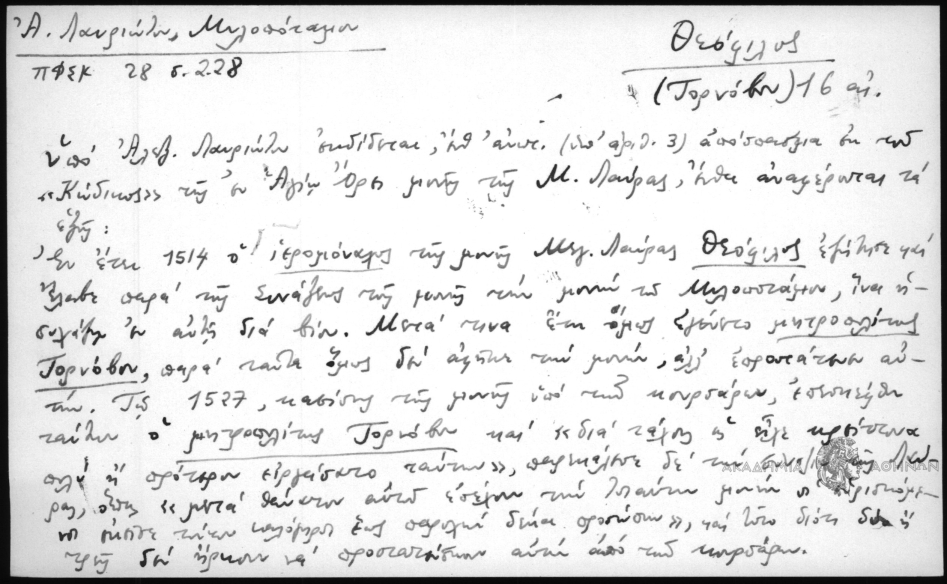 Ἀ. Λαυριώτου, Μυλοπόταμον
ΠΦΣΚ 28 σ. 228
Θεόφιλος
(Τορνόβου) 16 αἰ.
Ὑπό Ἀλεξ. Λαυριώτου ἐκδίδεται, ἔνθ' ἀνωτ. (ὑπ' ἀριθ. 3) ἀπόσπασμα ἐκ τοῦ
«Κώδικος» τῆς ἐν Ἁγίῳ Ὄρει μονῆς τῆς Μ. Λαύρας, ἔνθα ἀναφέρονται τά
ἑξῆς:
Ἐν ἔτει 1514 ὁ ἱερομόναχος τῆς μονῆς Μεγ. Λαύρας Θεόφιλος ἐζήτησε καί
ἔλαβε παρά τῆς Συνάξεως τῆς μονῆς τήν μονήν τοῦ Μυλοποτάμου, ἵνα ἡ-
συχάζῃ ἐν αὐτῇ διά βίου. Μετά τινα ἔτη ὅμως ἐγένετο μητροπολίτης
Τορνόβου, παρά ταῦτα ὅμως δέν ἀφῆκε τήν μονήν, ἀλλ' ἐπροστάτευεν αὐ-
τήν. Τῷ 1527, καείσης τῆς μονῆς ὑπό τῶν κουρσάρων, ἐπεσκεύασε
ταύτην ὁ μητροπολίτης Τορνόβου καί «διά τάχους κρείττονα
πολύ ἤ πρότερον εἰργάσατο ταύτην», παρεκάλεσε δέ τήν τῆς Λαύ-
ρας, ὅπως «μετά θάνατον αὐτοῦ ἔχουν τήν τοιαύτην μονήν
καλόγηροι ἕως δέκα», καί τοῦτο διότι δύο ἤ
τρεῖς δέν ἤρκουν νά προστατεύσουν αὐτήν ἀπό τῶν κουρσάρων.
ΑΚΑΔΗΜΙΑ ΑΘΗΝΩΝ